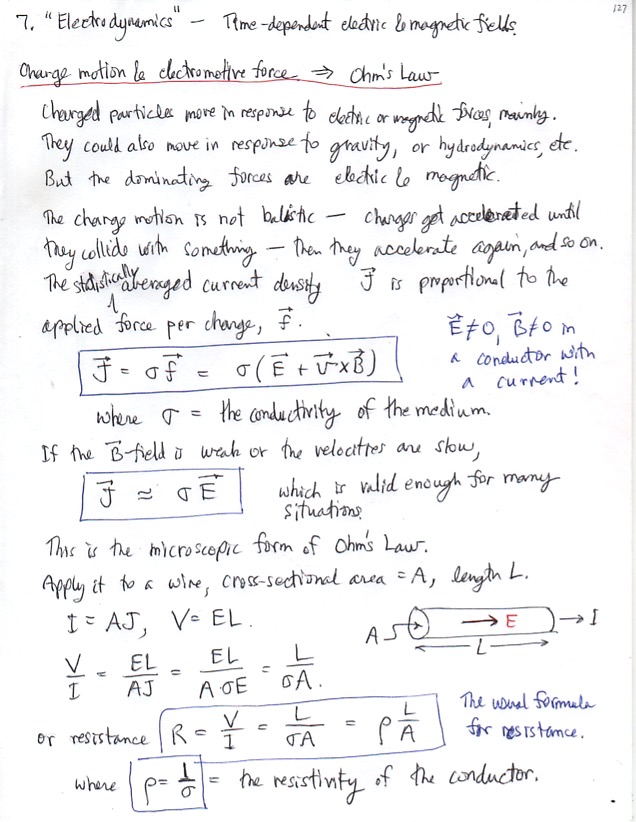 127
7. "Electrodynamics" — Time-dependent electric & magnetic fields.
Charge motion & electromotive force ⇒ Ohm's Law
Charged particles move in response to electric or magnetic forces, mainly.
They could also move in response to gravity, or hydrodynamics, etc.
But the dominating forces are electric & magnetic.
The charge motion is not ballistic — charges get accelerated until
they collide with something — then they accelerate again, and so on.
The statistically averaged current density J⃗ is proportional to the
applied force per charge, f⃗.
E⃗≠0, B⃗≠0 in
a conductor with
a current!
J⃗ = σf⃗ = σ(E⃗ + v⃗×B⃗)
where σ = the conductivity of the medium.
If the B⃗-field is weak or the velocities are slow,
J⃗ ≈ σE⃗ which is valid enough for many
situations.
This is the microscopic form of Ohm's Law.
Apply it to a wire, cross-sectional area = A, length L.
I = AJ, V = EL.
A E I
L
V/I = EL/AJ = EL/AσE = L/σA.
or resistance R = V/I = L/σA = ρ L/A
The usual formula
for resistance.
where ρ = 1/σ = the resistivity of the conductor.